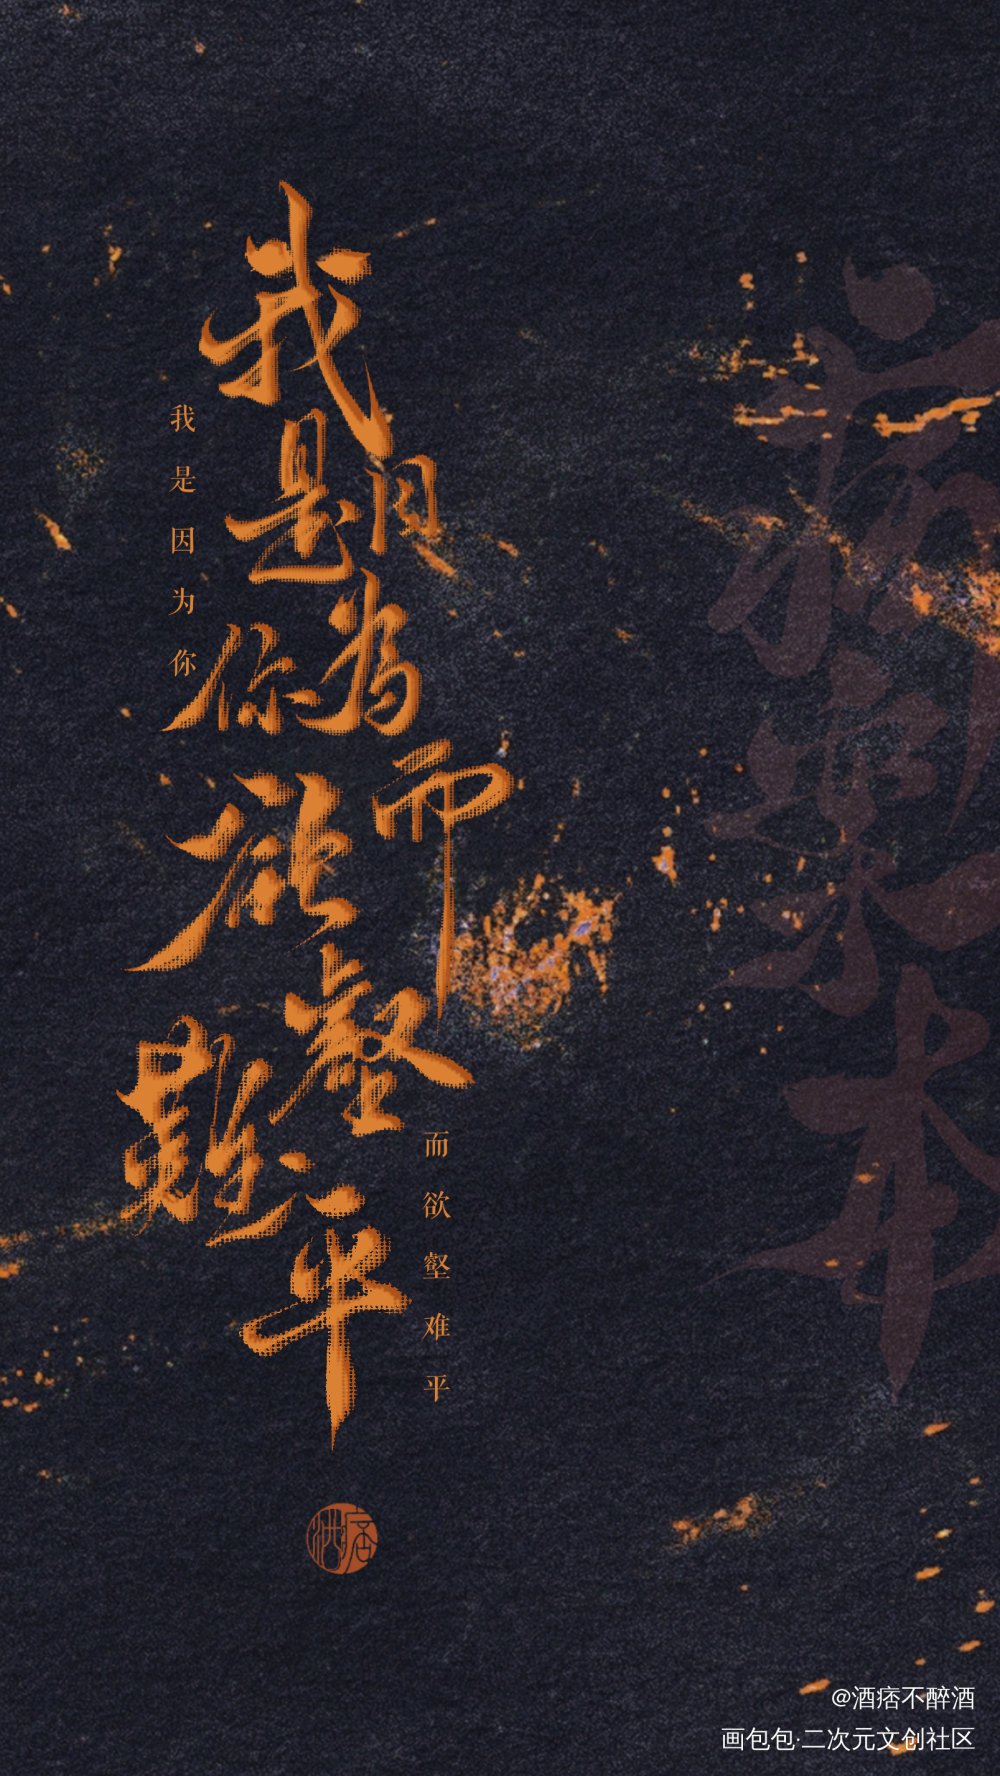 我是因為你而欲壑難平
我是因为你
而欲壑难平
病案本
酒痞
@酒痞不醉酒
画包包·二次元文创社区